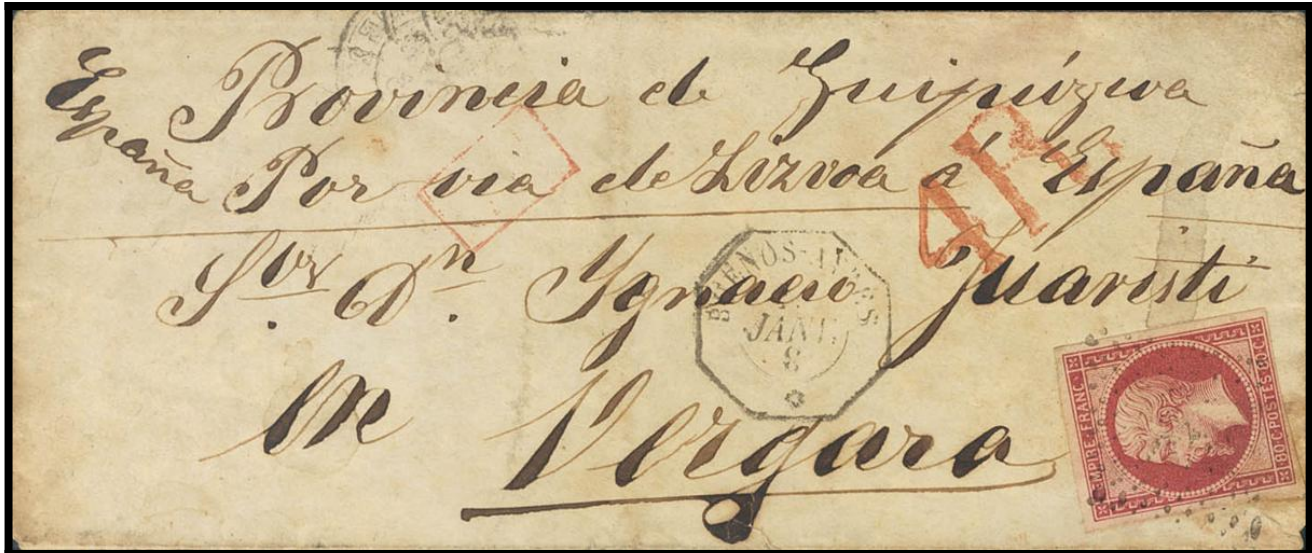 España
Provincia de Guipúzcoa
Por via de Lizvoa á España
4 R.
Sor. Dn. Ygnacio Juaristi
en Vergara
BUENOS-AYRES
JANV.
8
EMPIRE FRANC.
80 C. POSTES 80 C.